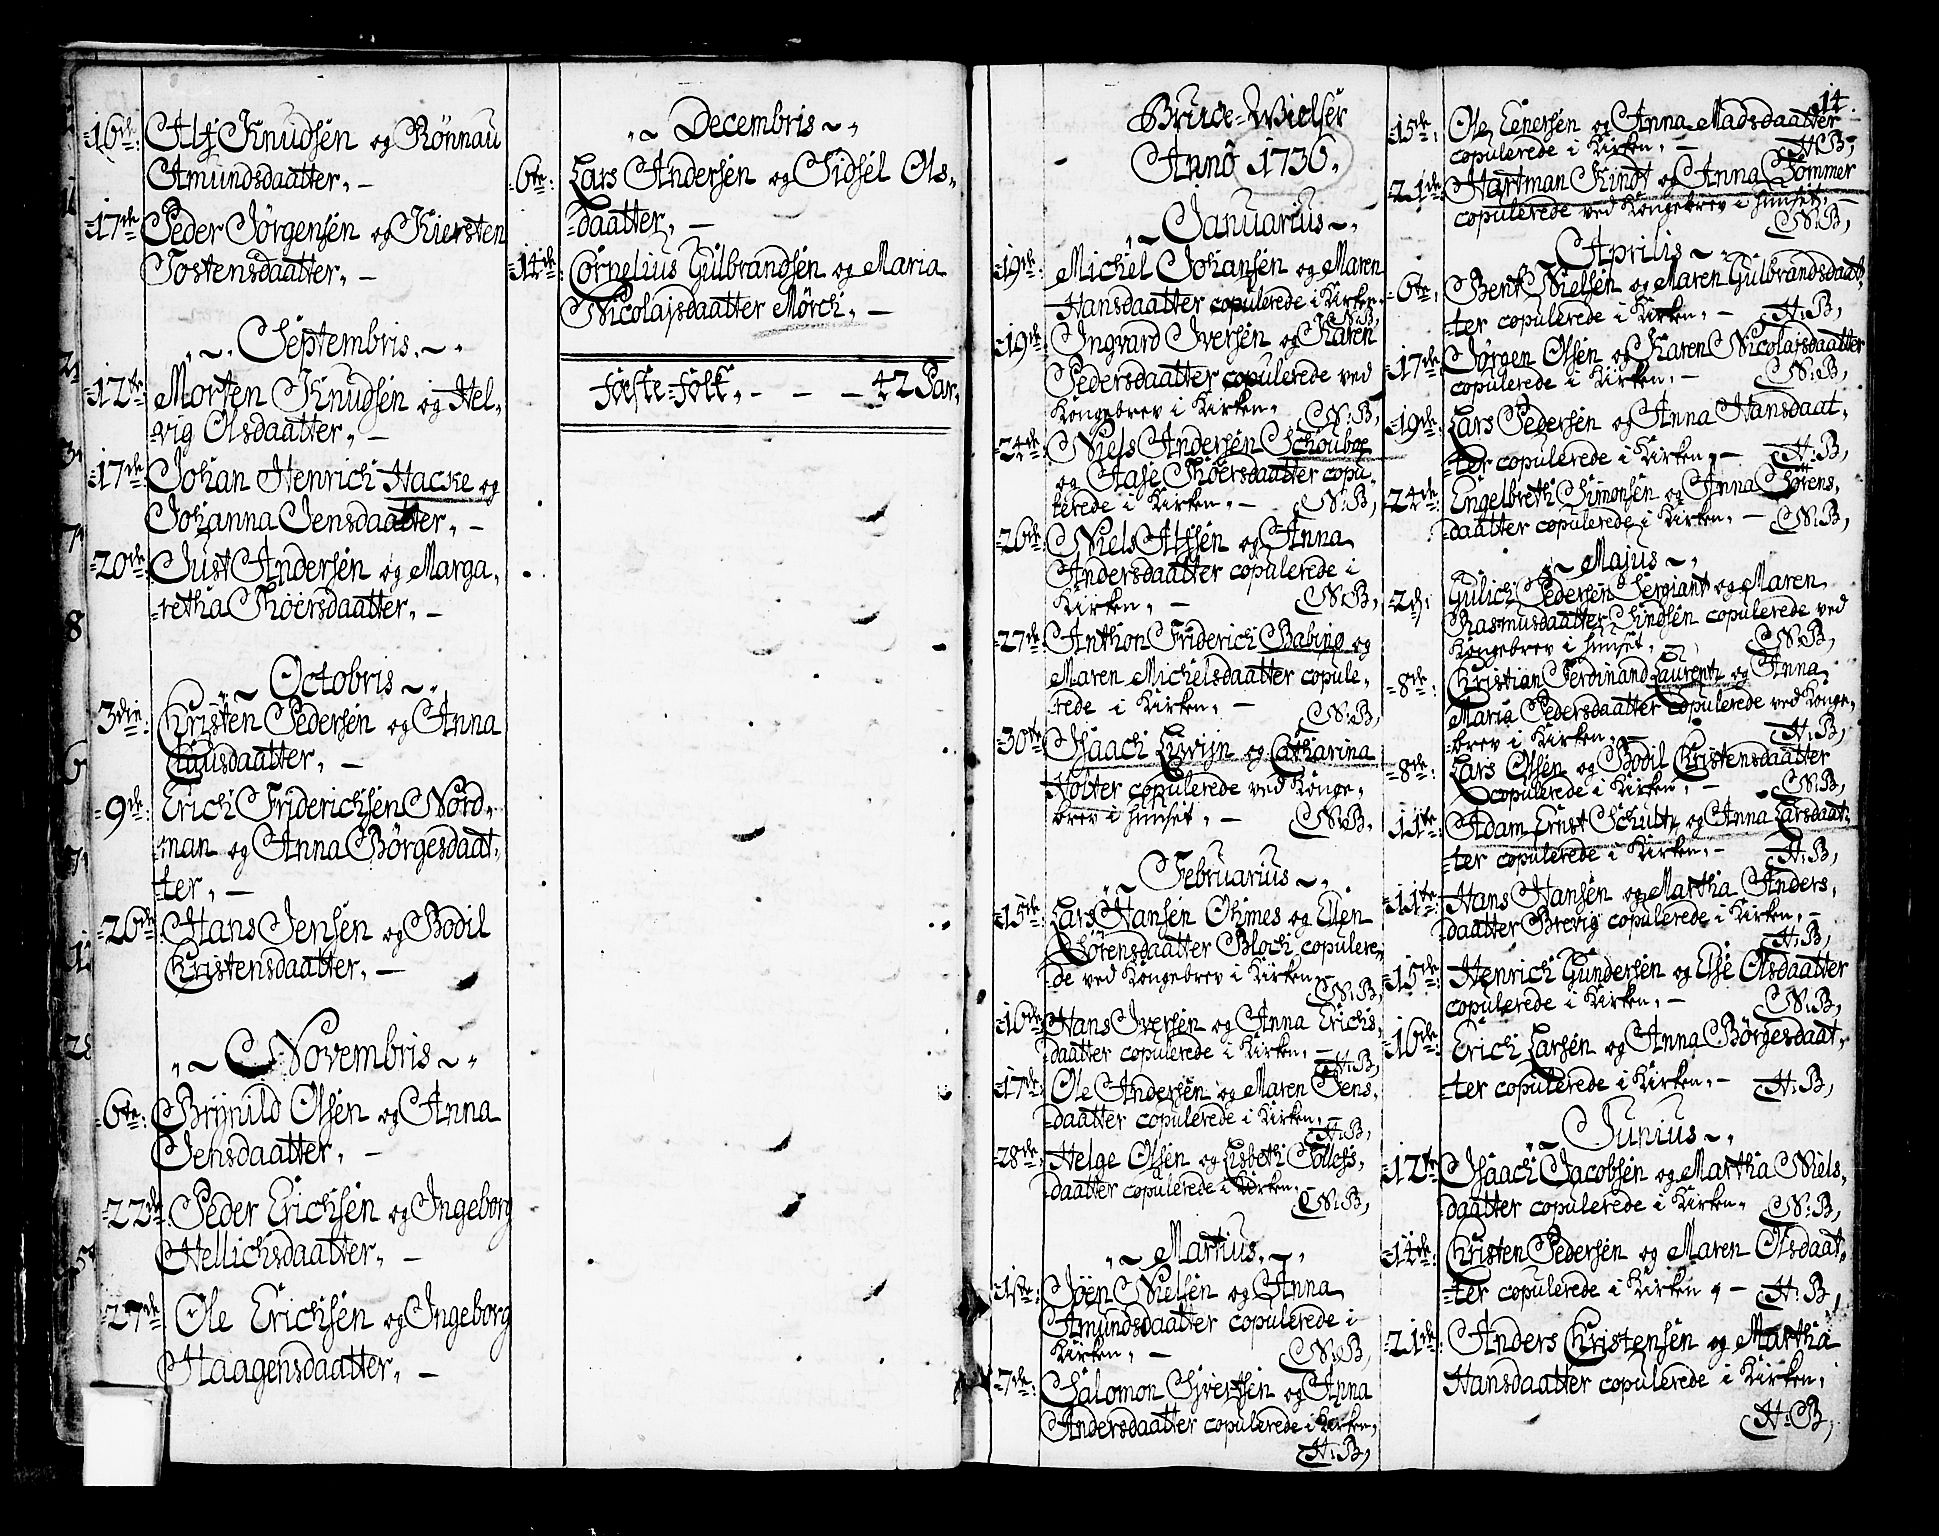 16de: Alf Knudsen og Rönnau
Amundsdaatter, –
17de Peder Jörgensen og Kiersten
Tostensdaatter, –
Septembris.
12te Morten Knudsen og Hel-
vig Olsdaatter, –
17de Johan Henrich Hacke og
Johanna Jensdaatter, –
20de Just Andersen og Marga-
retha Thoersdaatter, –
Octobris
3die: Christen Pedersen og Anna
Clausdaatter, –
9de Erich Friderichsen Nord-
man og Anna Börgesdaat-
ter, –
26de Hans Jensen og Bodil
Christensdaatter, –
Novembris
6te: Brynild Olsen og Anna
Jensdaatter, –
22de Peder Erichsen og Ingeborg
Hellichsdaatter, –
27de Ole Erichsen og Ingeborg
Haagensdaatter, –
Decembris
6te: Lars Andersen og Sidsel Ols-
daatter, –
14de: Cornelius Gulbrandsen og Maria
Nicolajsdaatter Mörch, –
föeste-folk, – – – 42 Par,
Brude-Vielser
Anno 1736.
Januarius
19de: Michel Johansen og Maren
Hansdaatter copulerede i Kirken
N:B,
19de Ingvard Iversen og Karen
Pedersdaatter copulerede ved
Kongebrev i Kirken. N:B,
24de Niels Andersen Schouboe
og Aase Thoersdaatter copu-
lerede i Kirken, – N:B,
26de Niels Alfsen og Anna
Andersdaatter copulerede i
Kirken, – N:B,
27de Anthon Friderich Babing og
Maren Michelsdaatter copule-
rede i Kirken, – N:B,
30te Isaach Lywijn og Catharina
Holter copulerede ved Konge-
brev i Huuset, – N:B,
Februarius
15de Lars Hansen Ohmes og Ellen
Sörensdaatter Bloch copulere-
de ved Kongebrev i Kirken, –
N:B,
16de Hans Iversen og Anna Erichs-
daatter copulerede i Kirken, –
H:B,
17de: Ole Andersen og Maren Jens-
daatter copulerede i Kirken, –
H:B,
28de Helge Olsen og Lisbeth Tollefs-
daatter copulerede i Kirken. –
N:B,
Martius.
1ste: Joen Nielsen og Anna
Amundsdaatter copulerede i
Kirken, – N:B,
7de: Salomon Sjvertsen og Anna
Andersdaatter copulerede i Kirken,
H:B,
14.
15de: Ole Eenersen og Anna Madsdaatter
copulerede i Kirken, – H:B,
21de Hartman Kindt og Anna Sommer
copulerede ved Kongebrev i Huuset, –
N:B,
Aprilis
6te: Bent Nielsen og Maren Gulbrandsdaat-
ter copulerede i Kirken, – H:B,
17de Jörgen Olsen og Karen Nicolajsdaatter
copulerede i Kirken, – N:B,
19de Lars Pedersen og Anna Hansdaat-
ter copulerede i Kirken, – H:B,
24de Engelbreth Simonsen og Anna Sörens-
daatter copulerede i Kirken, – N:B,
Majus
2d, Gulich Pedersen Sergiant og Maren
Rasmusdaatter Sindsen copulerede ved
Kongebrev i Huuset, N:B,
8de: Christian Ferdinand Laurentz og Anna
Maria Pedersdaatter copulerede ved Konge-
brev i Kirken, – H:B,
8de: Lars Olsen og Bodil Christensdaatter
copulerede i Kirken, – N:B,
11te: Adam Ernst Schultz og Anna Larsdaat-
ter copulerede i Kirken, – H:B,
11te Hans Hansen og Martha Anders-
daatter Brevig copulerede i Kirken, –
H:B,
15de Henrich Gundersen og Else Olsdaatter
copulerede i Kirken, – N:B,
16de: Erich Larsen og Anna Börgesdaat-
ter copulerede i Kirken, – H:B,
Junius
12te Isaach Jacobsen og Martha Niels-
daatter copulerede i Kirken, N:B,
14de: Christen Pedersen og Maren Olsdaat-
ter copulerede i Kirken, – H:B,
21de: Anders Christensen og Martha
Hansdaatter copulerede i Kirken,
H:B,